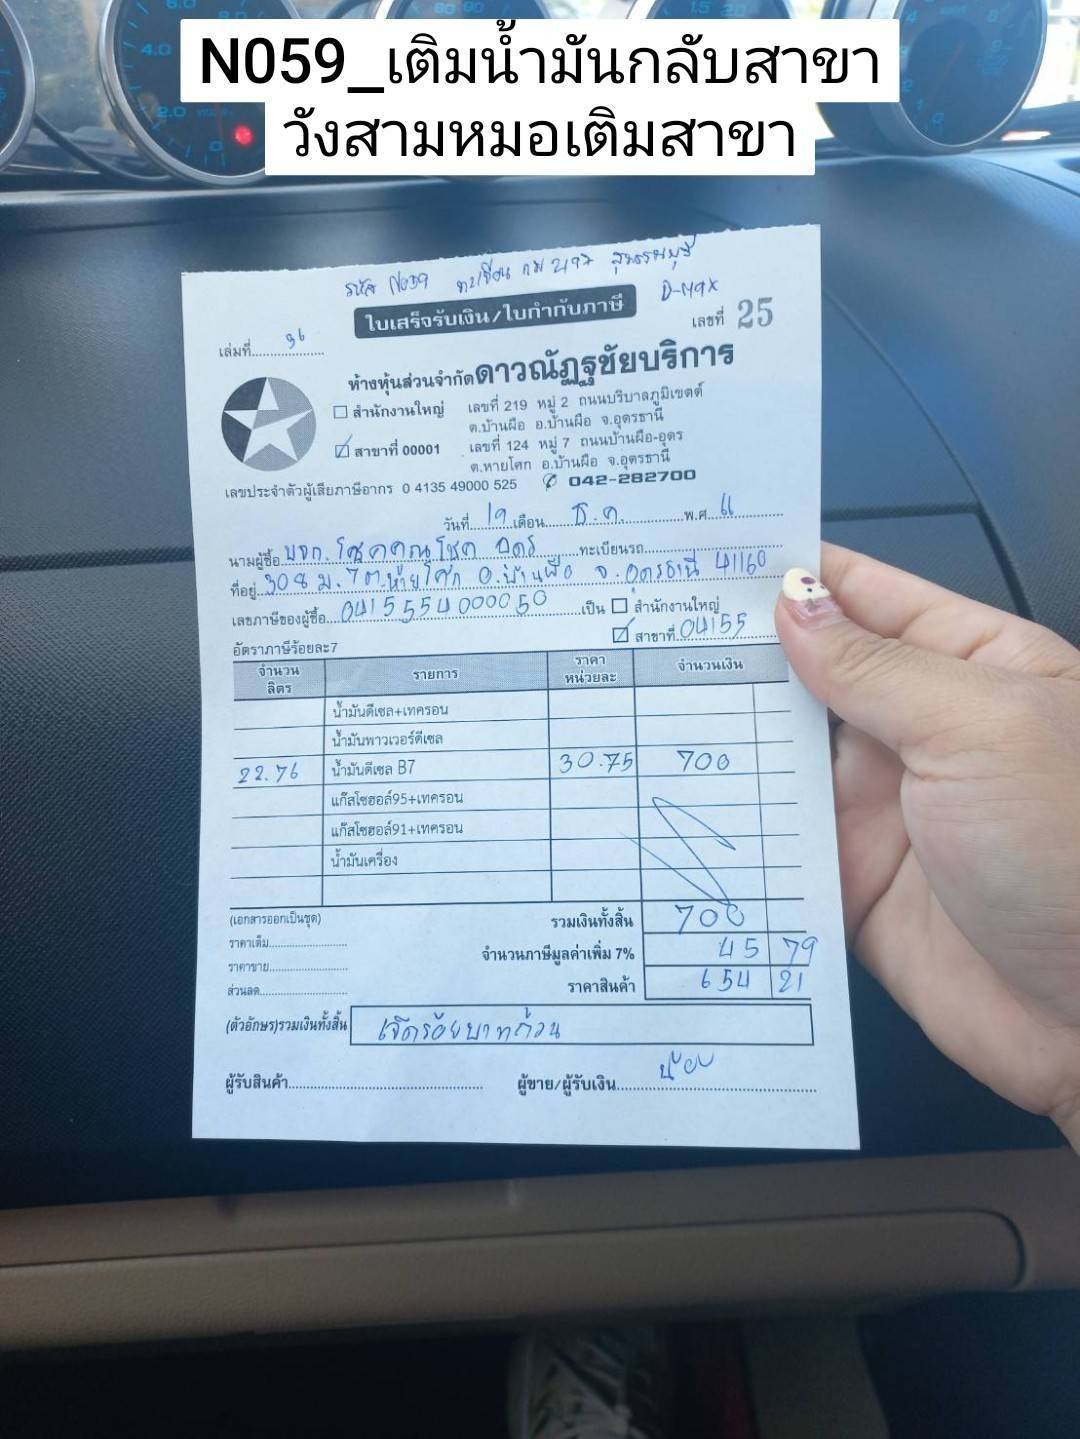 N059_เติมน้ำมันกลับสาขา
วังสามหมอเติมสาขา
รหัส N059 ทะเบียน กม 2197 สุพรรณบุรี
D-MAX
ใบเสร็จรับเงิน/ใบกำกับภาษี
เล่มที่ 36 เลขที่ 25
ห้างหุ้นส่วนจำกัดดาวณัฏฐชัยบริการ
สำนักงานใหญ่ เลขที่ 219 หมู่ 2 ถนนบริบาลภูมิเขตต์
ต.บ้านผือ อ.บ้านผือ จ.อุดรธานี
สาขาที่ 00001 เลขที่ 124 หมู่ 7 ถนนบ้านผือ-อุดร
ต.หายโศก อ.บ้านผือ จ.อุดรธานี
เลขประจำตัวผู้เสียภาษีอากร 0 4135 49000 525 042-282700
วันที่ 19 เดือน ธ.ค. พ.ศ
นามผู้ซื้อ บจก. โชคคูณโชค อุดร ทะเบียนรถ
ที่อยู่ 308 ม.7 ต.หายโศก อ.บ้านผือ จ.อุดรธานี 41160
เลขภาษีของผู้ซื้อ 0415554000050 เป็น สำนักงานใหญ่
สาขาที่ 04155
อัตราภาษีร้อยละ7
จำนวนลิตร รายการ ราคาหน่วยละ จำนวนเงิน
น้ำมันดีเซล+เทครอน
น้ำมันพาวเวอร์ดีเซล
22.76 น้ำมันดีเซล B7 30.75 700
แก๊สโซฮอล์95+เทครอน
แก๊สโซฮอล์91+เทครอน
น้ำมันเครื่อง
(เอกสารออกเป็นชุด) รวมเงินทั้งสิ้น 700
ราคาเต็ม
จำนวนภาษีมูลค่าเพิ่ม 7% 45 79
ราคาขาย
ราคาสินค้า 654 21
ส่วนลด
(ตัวอักษร)รวมเงินทั้งสิ้น เจ็ดร้อยบาทถ้วน
ผู้รับสินค้า ผู้ขาย/ผู้รับเงิน น้อย